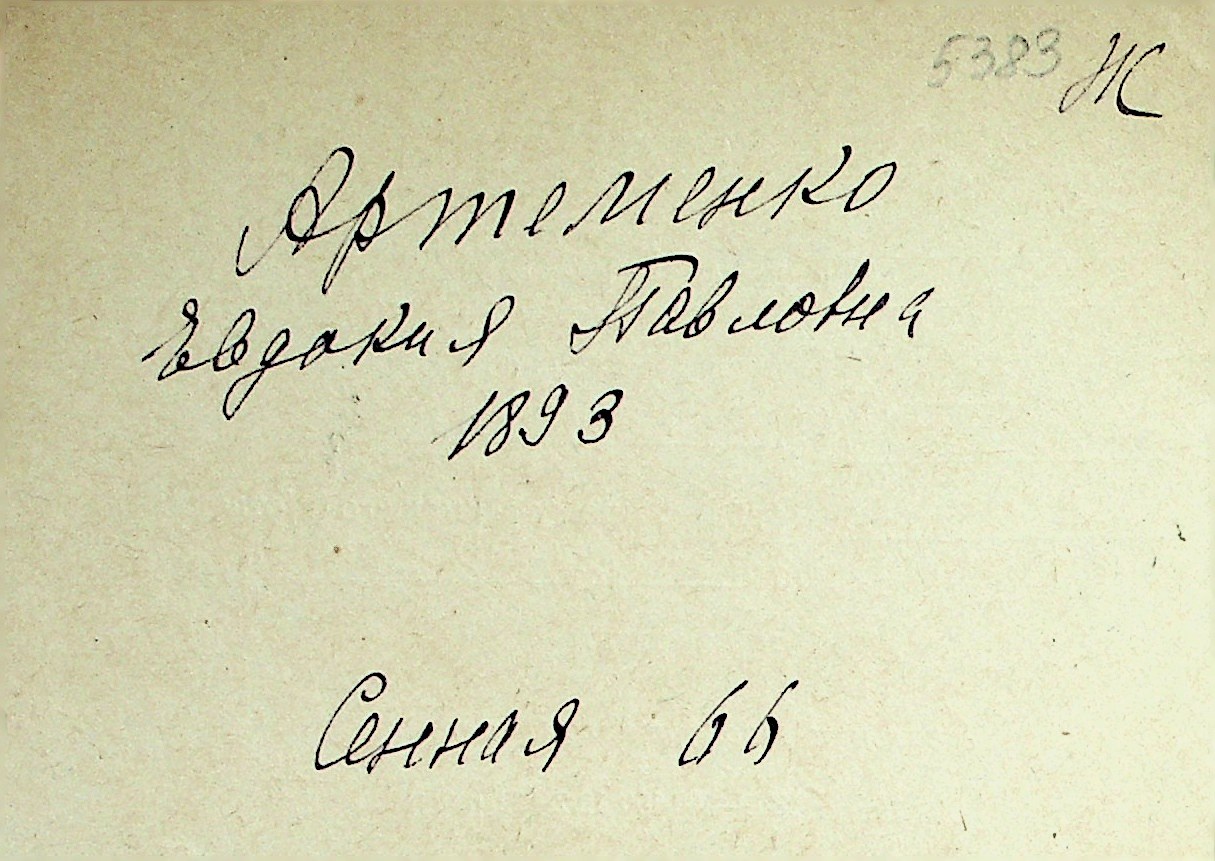 5383 Ж
Артеменко
Евдокия Павловна
1893
Сенная 66